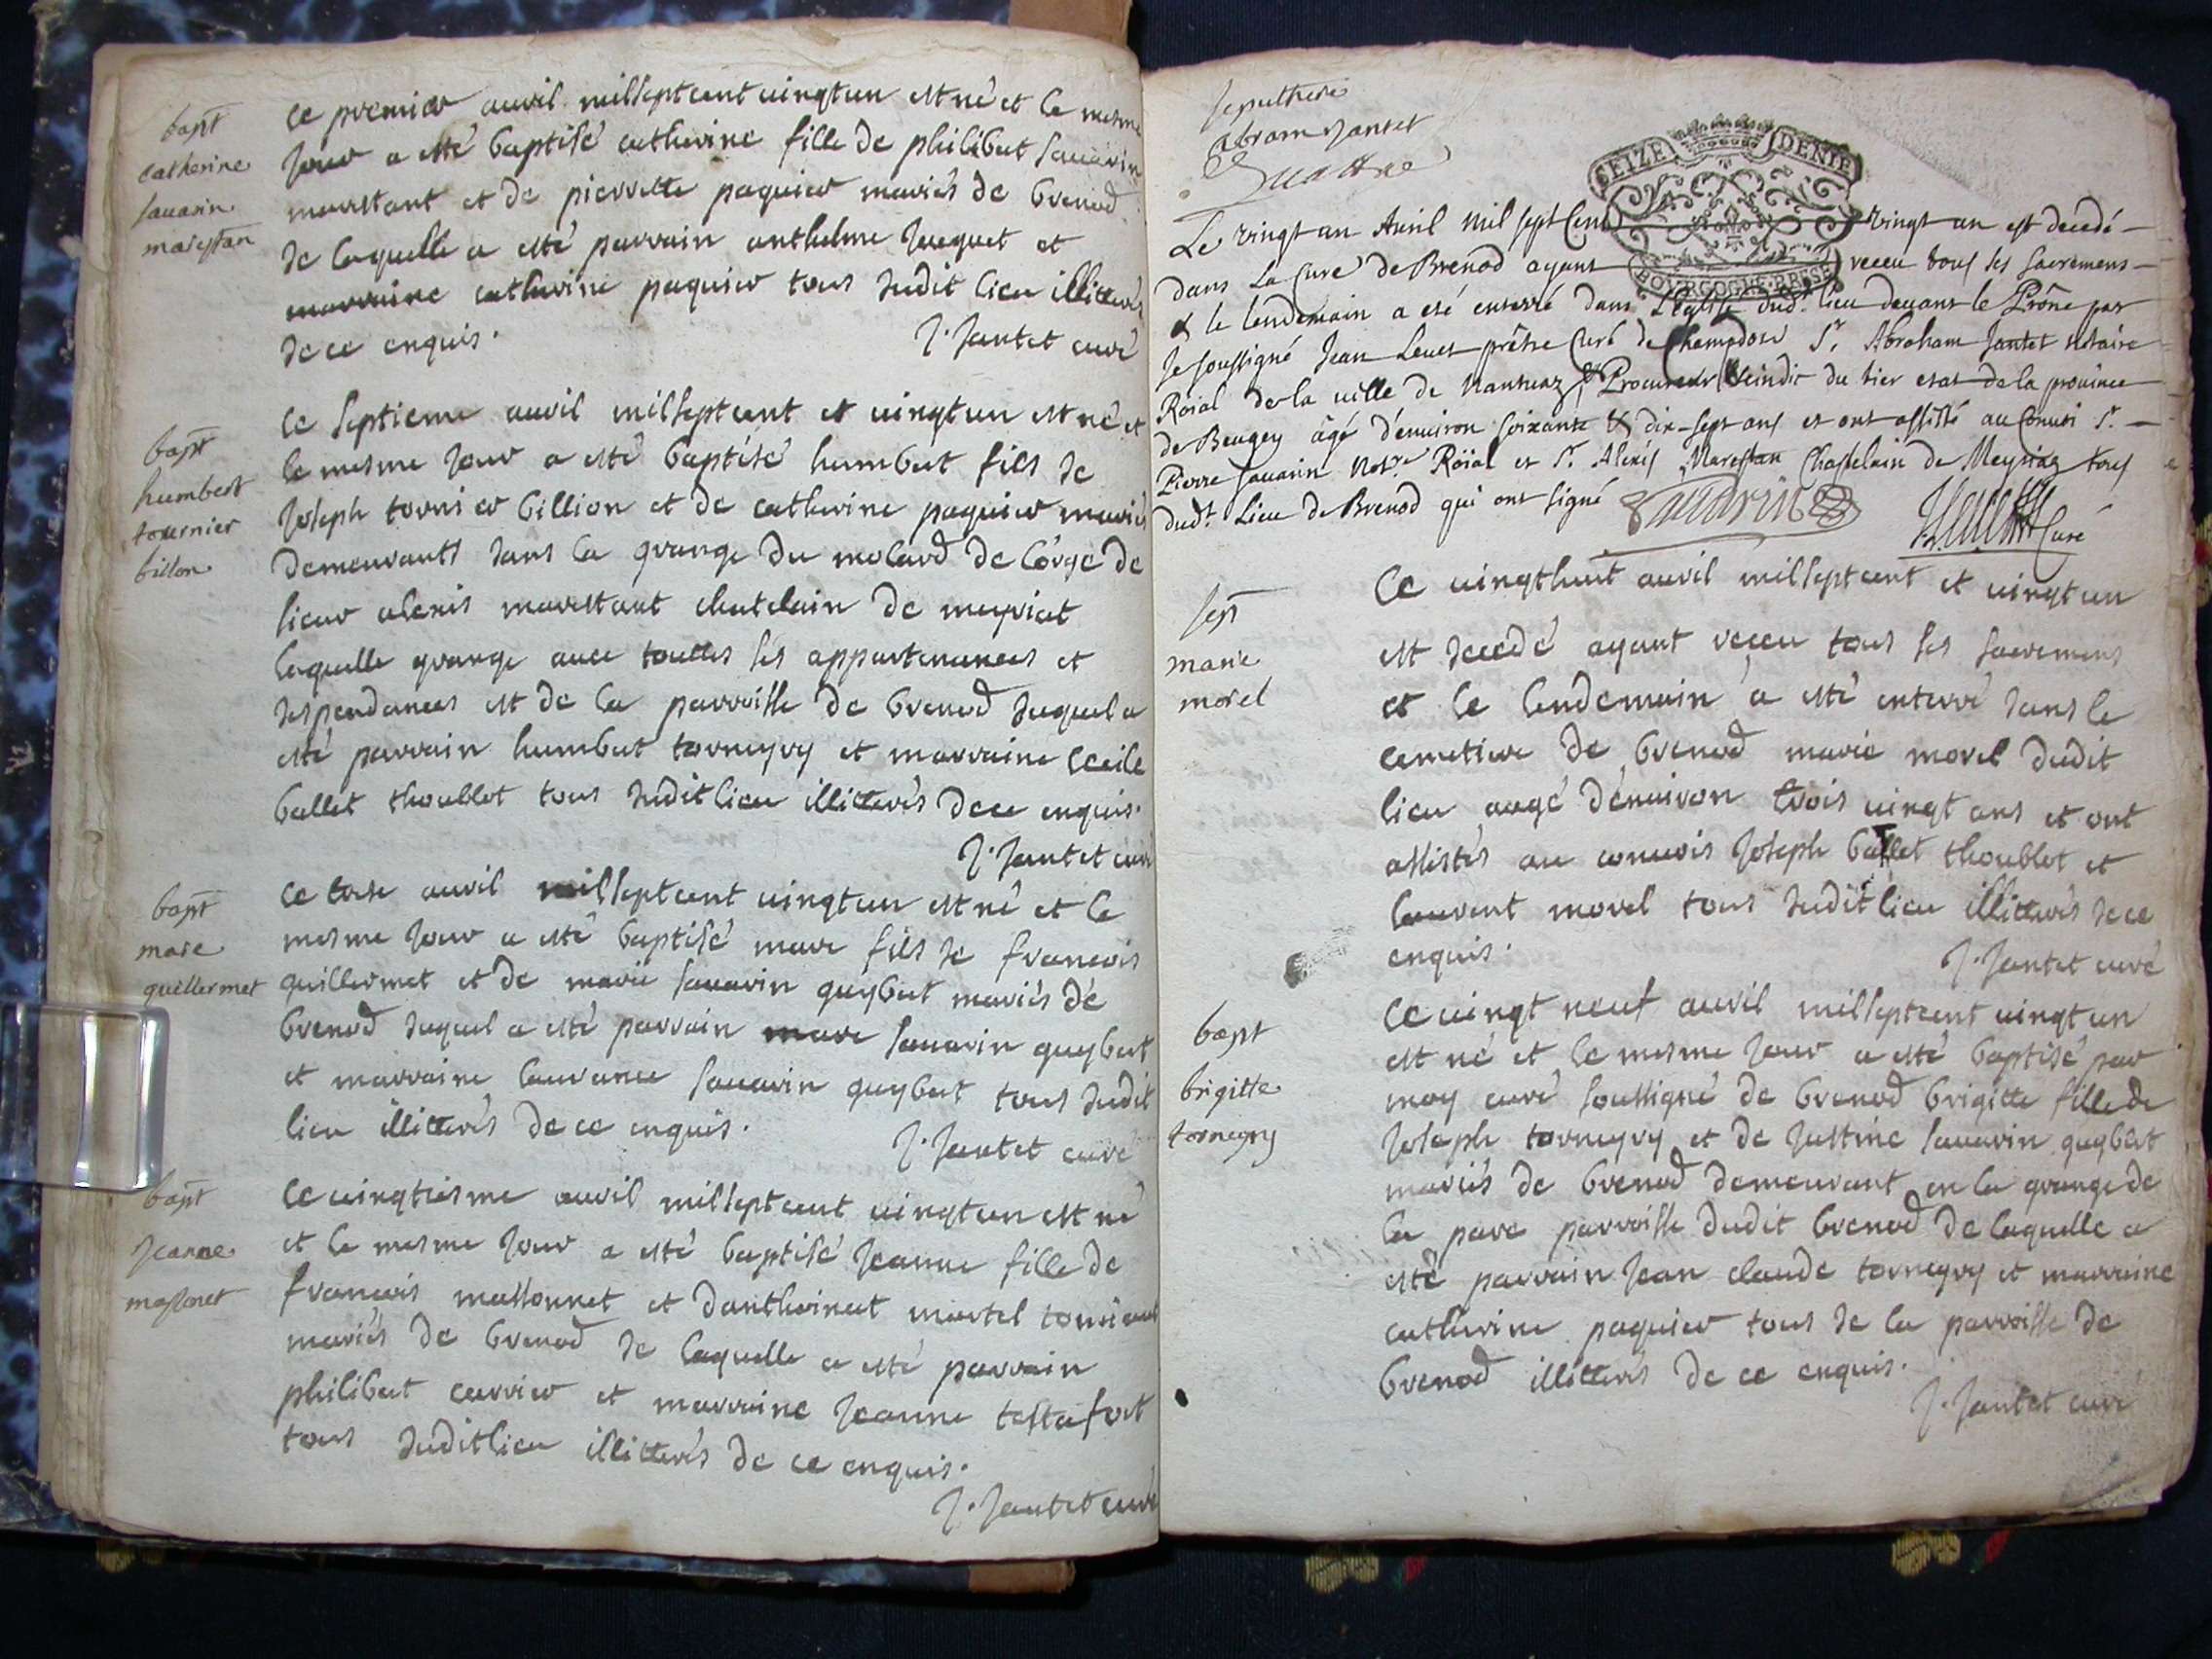 bapt
catherine
sauarin
marestan
Ce premier auvril milseptcent uingt un est né et le mesme
Jour a esté baptisé catherine fille de philibert sauarin
marestant et de pierrette paquier mariés de brenod
de laquelle a esté parrain anthelme Juquet et
marraine catherine paquier tous dudit lieu illitterés
de ce enquis.
J. Jantet curé
bapt
humbert
tournier
billon
Ce septieme auvril milseptcent et uingt un est né et
le mesme Jour a esté baptisé humbert fils de
Joseph tornier billion et de catherine paquier mariés
demeurants dans la grange du molard de lorge de
sieur alexis marestant chatelain de meyriat
laquelle grange auec touttes ses appartenances et
dependances est de la parroisse de brenod duquel a
esté parrain humbert torneyry et marraine Cecile
ballet thoublot tous dudit lieu illitterés de ce enquis.
J. Jantet curé
bapt
marc
guillermet
Ce tose auvril milseptcent uingt un est né et le
mesme Jour a esté baptisé marc fils de francois
guillermet et de marie sauarin guybert mariés de
brenod duquel a esté parrain marc sauarin guybert
et marraine laurance sauarin guybert tous dudit
lieu illitterés de ce enquis.
J. Jantet curé
bapt
Jeanne
massonet
Ce uingtiesme auvril milseptcent uingt un est né
et le mesme Jour a esté baptisé Jeanne fille de
francois massonnet et danthoinert martel
mariés de brenod de laquelle a esté parrain
philibert carrier et marraine Jeanne testafort
tous dudit lieu illitterés de ce enquis.
J. Jantet curé
sepulture
abram Jantet
SEIZE DENIE
BOURGOGNE·BRESSE
Le vingt un Auril mil sept Cent vingt un est decedé
dans La Cure de Brenod ayant receu tous les sacremens
& le lendemain a esté enterré dans L'Eglise dud. lieu deuant le Prône par
Je soussigné Jean Leuet prêtre Curé de Champdor Sr. Abraham Jantet notaire
Roial de la uille de Nantuaz & Procureur Scindic du tier estat de la prouince
de Beugey âgé d'enuiron soixante & dix-sept ans et ont assisté au Conuoi Sr.
Pierre sauarin Notre Roïal et Sr. Alexis Marestan Chastelain de Meyriaz tous
dudt. Lieu de Brenod qui ont signé
Sauarin
Curé
sept
marie
morel
Ce uingthuit auvril milseptcent et uingt un
est decedé ayant receu tous les sacremens
et le lendemain a esté enterré dans le
cemetiere de brenod marie morel dudit
lieu aagé denuiron trois uingt ans et ont
assistés au conuois Joseph ballet thoublot et
laurent morel tous dudit lieu illitterés de ce
enquis.
J. Jantet curé
bapt
brigitte
torneyry
Ce uingt neuf auvril milseptcent uingt un
est né et le mesme Jour a esté baptisé par
moy curé soussigné de brenod brigitte fille de
Joseph torneyry et de Justine sauarin guybert
mariés de brenod demeurant en la grange de
la pare parroisse dudit brenod de laquelle a
esté parrain Jean claude torneyry et marraine
catherine paquier tous de la parroisse de
brenod illitterés de ce enquis.
J. Jantet curé